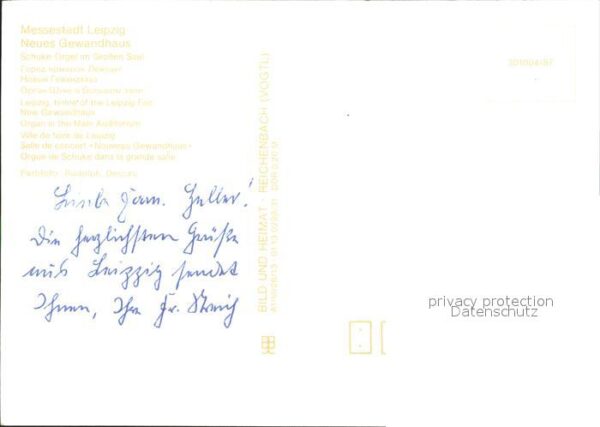 Messestadt Leipzig
Neues Gewandhaus
Schuke-Orgel im Großen Saal
Город ярмарок Лейпциг
Новый Гевандхауз
Орган Шуке в Большом зале
Leipzig, town of the Leipzig Fair
New Gewandhaus
Organ in the Main Auditorium
Ville de foire de Leipzig
Salle de concert «Nouveau Gewandhaus»
Orgue de Schuke dans la grande salle
Farbfoto: Rudolph, Dessau
Liebe Fam. Heller!
Die herzlichsten Grüße
aus Leipzig sendet
Ihnen, Ihr Fr. Streich
BILD UND HEIMAT · REICHENBACH (VOGTL)
301004/87
privacy protection
Datenschutz